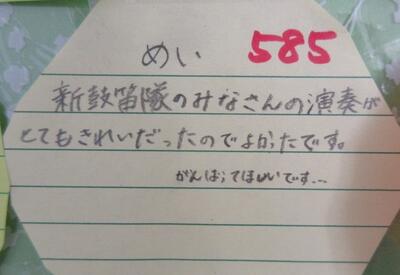 めい 585
新鼓笛隊のみなさんの演奏が
とてもきれいだったのでよかったです。
がんばってほしいです…